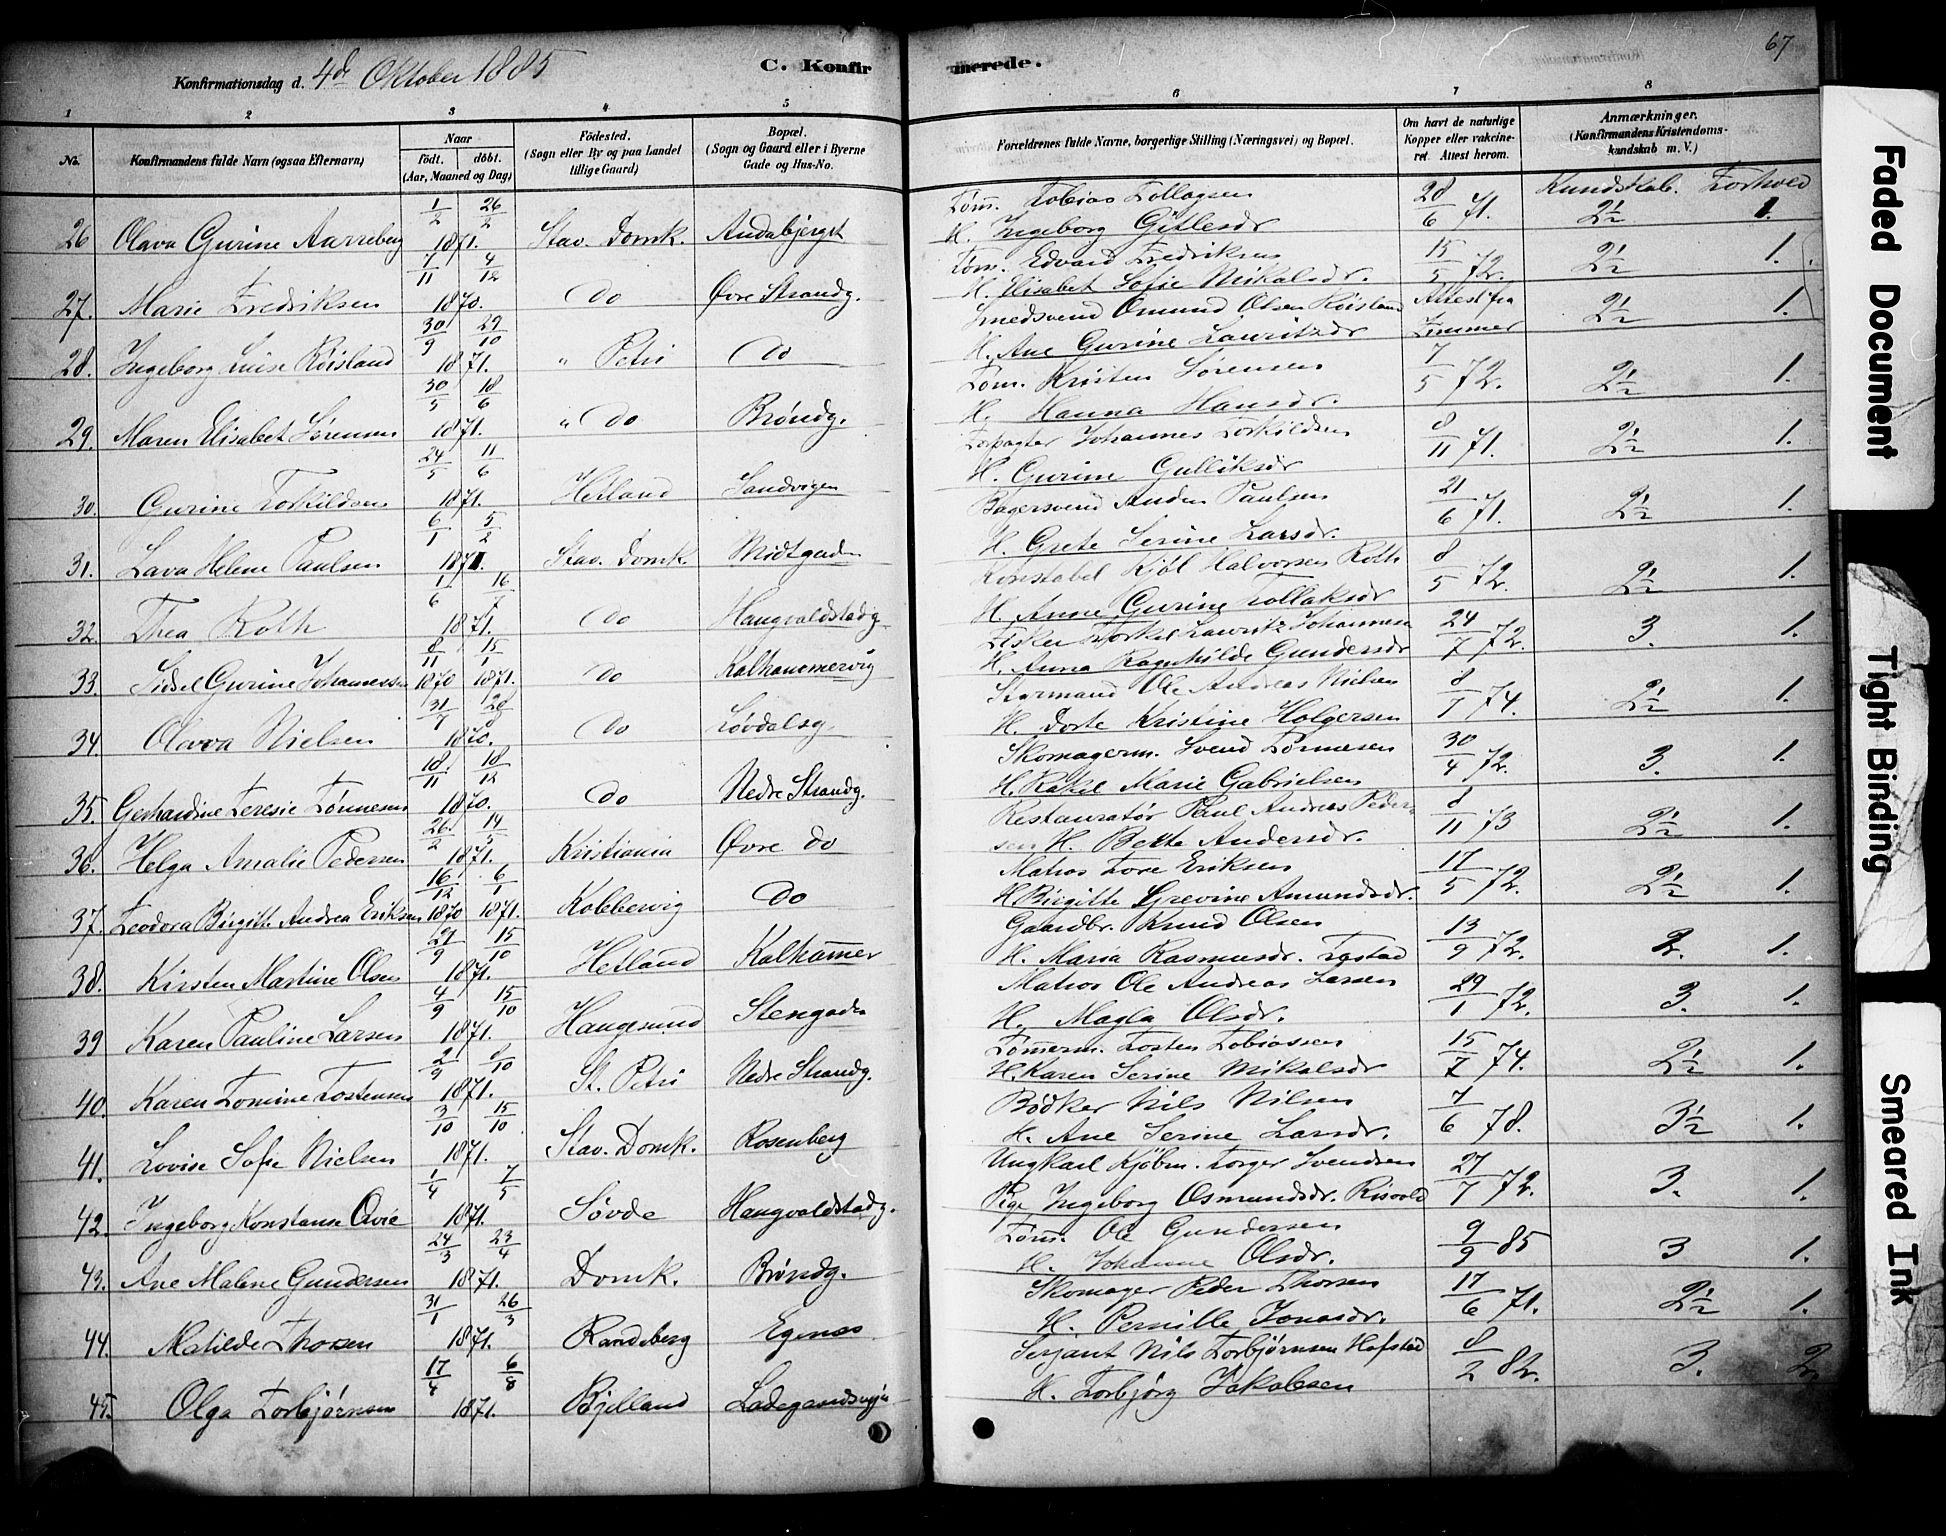 67
Konfirmationsdag d. 4de Oktober 1885
C. Konfirmerede.
1 2 3 4 5 6 7 8
No.
Konfirmandens fulde Navn (ogsaa Efternavn)
Naar
födt. döbt.
(Aar, Maaned og Dag)
Födested.
(Sogn eller By og paa Landet
tillige Gaard)
Bopæl.
(Sogn og Gaard eller i Byerne
Gade og Hus-No.
Forældrenes fulde Navne, borgerlige Stilling (Næringsvei) og Bopæl.
Om havt de naturlige
Kopper eller vakcine-
ret. Attest herom.
Anmærkninger.
(Konfirmandens Kristendoms-
kundskab m. V.)
Kundskab. Forhold
26 Olava Gurine Aarreberg 1/2 26/2 1871. Stav. Domk. Andabjergst Töm. Tobias Tollagsen
H. Ingeborg Gitlesdr 28/6 71. 2½ 1.
27. Marie Fredriksen 7/11 4/12 1870. Do Øvre Strandg. Töm. Edvard Fredriksen
H. Elisabet Sofie Mikalsdr. 15/5 72. 2½ 1.
28. Ingeborg Luise Röisland 30/9 29/10 1871. " Petri Do Smedsvend Omund Olsen Röisland
H. Ane Gurine Lauritzdr Attest fra
Zimmer 2½ 1.
29. Maren Elisabet Sørensen 30/5 18/6 1871. " Do Brøndg. Töm. Kristen Sørensen
H. Hanna Hansdr. 7/5 72. 2½ 1.
30. Gurine Torkildsen 24/5 11/6 1871. Hetland Sandvigen Johannes Torkildsen
H. Gurine Gulliksdr 8/11 71. 2½ 1.
31. Lava Helene Paulsen 6/1 5/2 1871. Stav. Domk. Midtgaden Bagersvend Anders Paulsen
H. Grete Serine Larsdr. 21/6 71. 2½ 1.
32. Thea Roth 1/6 16/7 1871. Do Haugvaldstadg Konstabel Kjöl Halvorsen Roth
H. Anne Gurine Tollaksdr 8/5 72. 2½ 1.
33. Sidsel Gurine Johannessen 8/11 1870 15/1 1871. Do Kalhammervig Fisker Torkel Lauritz Johannesen
H. Anna Ragnhilde Gundersdr 24/7 72. 3. 1.
34. Olava Nielsen 31/7 28/8 1870. Do Løvdalsg. Styrmand Ole Andreas Nielsen
H. Dorte Kristine Holgersen 8/1 74. 2½ 1.
35. Gerhardine Teresie Tönnesen 18/11 18/12 1870. Do Nedre Strandg. Skomagerm. Svend Tönnesen
H. Rakel Marie Gabrielsen 30/4 72. 3. 1.
36. Helga Amalie Pedersen 26/2 14/5 1871. Kristiania Øvre Do Restauratør Paul Andreas Peder-
sen H. Berte Andersdr. 8/11 73 2½ 1.
37. Teodora Birgitte Andrea Eriksen 16/12 1870 6/1 1871. Kobbervig Do Matros Tore Eriksen
H. Birgitte Grevine Amundsdr. 17/5 72. 2½ 1.
38. Kirsten Martine Olsen 27/9 15/10 1871. Hetland Kalhammer Gaardbr. Knud Olsen
H. Maria Rasmusdr. Tastad 13/9 72. 2. 1.
39 Karen Pauline Larsen 4/9 15/10 1871. Haugesund Stengaden Matros Ole Andreas Larsen
H. Magla Olsdr. 29/1 72. 3. 1.
40. Karen Tomine Tostensen 2/9 8/10 1871. St. Petri Nedre Strandg. Tömmerm. Tosten Tobiassen
H. Karen Serine Mikalsdr 15/7 74. 2½ 1.
41. Lovise Sofie Nielsen 3/10 15/10 1871. Stav. Domk. Rosenberg Bödker Nils Nilsen
H. Ane Serine Larsdr. 7/6 78. 3½ 1.
42. Ingeborg Konstanse Qvie 1/4 7/5 1871. Søvde Haugvaldstadg. Ungkarl Kjöbm. Torger Svendsen
Pige Ingeborg Osmundsdr. Risvold 27/7 72. 3. 1.
43. Ane Malene Gundersen 24/3 23/4 1871. Domk. Brøndg. Töm. Ole Gundersen
H. Johanne Olsdr. 9/9 85 3 1.
44. Matilde Thorsen 31/1 26/3 1871. Randeberg Egenæs Skomager Peder Thorsen
H. Pernille Jonasdr. 17/6 71. 2½ 1.
45. Olga Torbjörnsen 17/4 6/8 1871. Bjelland Ladegaardsveien Serjant Nils Torbjörnsen Hofstad
H. Torbjörg Jakobsen 8/2 82. 3. 2.
Faded Document
Tight Binding
Smeared Ink